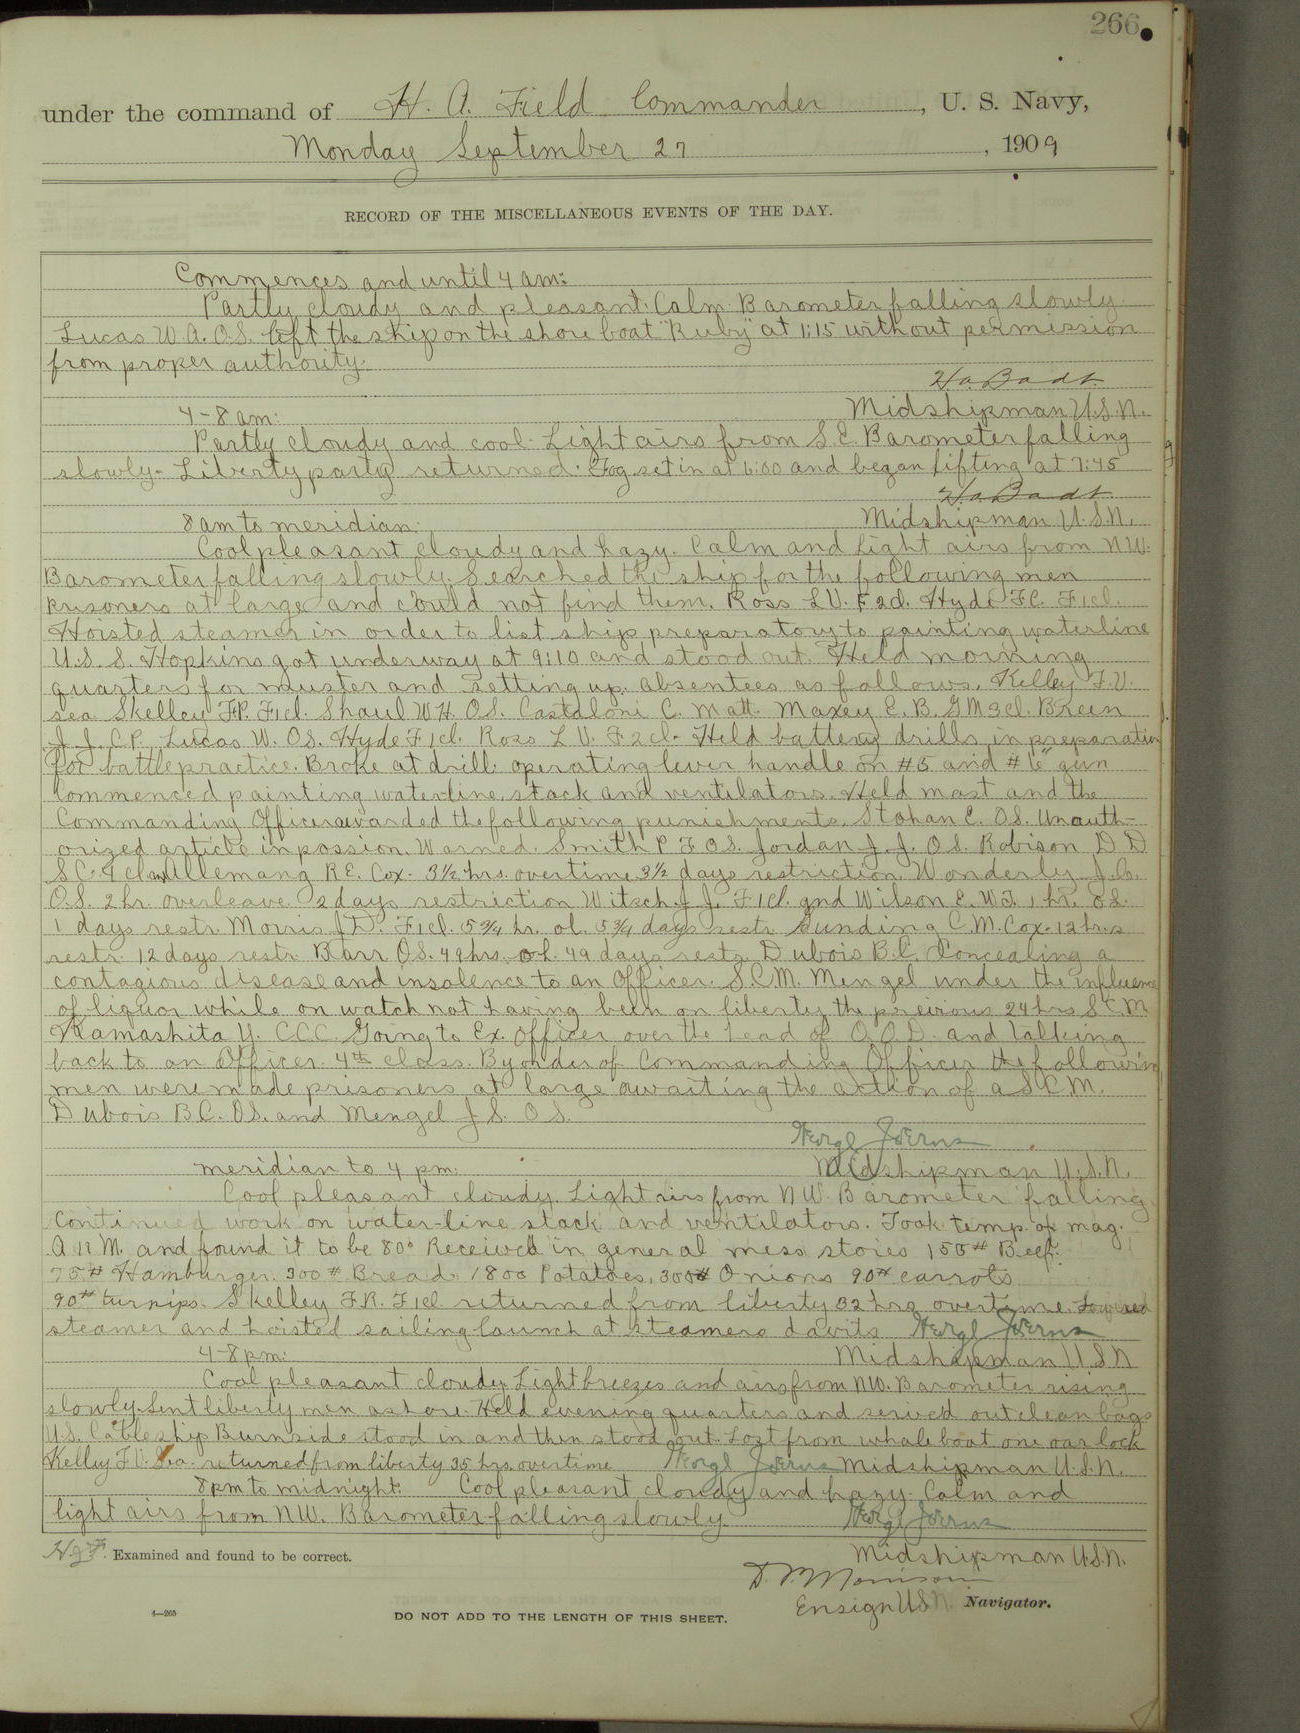 266
under the command of H. A. Field Commander, U. S. Navy,
Monday September 27, 1909
RECORD OF THE MISCELLANEOUS EVENTS OF THE DAY.
Commences and until 4 am:
Partly cloudy and pleasant. Calm. Barometer falling slowly.
Lucas W. A. O.S. left the ship on the shore boat "Ruby" at 1:15 without permission
from proper authority.
H. a. Badt.
Midshipman U.S.N.
4-8 am:
Partly cloudy and cool. Light airs from S.E. Barometer falling
slowly- Liberty party returned. Fog set in at 6:00 and began lifting at 7:45
H. a. Badt
Midshipman U.S.N.
8 am to meridian.
Cool pleasant cloudy and hazy. Calm and light airs from NW.
Barometer falling slowly. Searched the ship for the following men
prisoners at large and could not find them. Ross L.V. F2cl. Hyde F.C. F1cl.
Hoisted steamer in order to list ship preparatory to painting waterline
U.S.S. Hopkins got underway at 9:10 and stood out. Held morning
quarters for muster and setting up. absentees as follows. Kelley F.V.
sea. Skelley F.P. F1cl. Shaul W.H. O.S. Castaloni C. Matt. Maxey E. B. G M 3cl. Breen
J. J. C.P. Lucas W. O.S. Hyde F1cl. Ross L V. F2cl. Held battery drills in preparation
for battle practice. Broke at drill operating lever handle on #5 and # 6" gun
Commenced painting water-line, stack and ventilators. Held mast and the
Commanding Officer awarded the following punishments. Stohan E. O.S. Unauth-
orized article in possion. Warned. Smith P F O.S. Jordan J. J. O.S. Robison D D
S.C. 4 cl and Allemang R.E. Cox. 3 1/2 hrs. overtime 3 1/2 days restriction. Wonderly J.C.
O.S. 2 hr. overleave 2 days restriction Witsch J. J. F1cl. and Wilson E. W.T. 1 hr. o.l.
1 days restr. Morris J D. F1cl. 5 3/4 hr. ol. 5 3/4 days restr. Sunding C.M. Cox. 12 hrs
restr. 12 days restr. Barr O.S. 49 hrs. ol. 49 days restr. Dubois B.C. Concealing a
contagious disease and insolence to an Officer. S.C.M. Mengel under the influence
of liquor while on watch not having been on liberty the previous 24 hrs S.C.M.
Kamashita Y. C.C.C. Going to Ex. Officer over the head of O.O.D. and talking
back to an Officer. 4th class. By order of Commanding Officer the following
men were made prisoners at large awaiting the action of a S.C.M.
Dubois B.C. O.S. and Mengel J S. O.S.
Midshipman U.S.N.
meridian to 4 pm:
Cool pleasant cloudy. Light airs from NW. Barometer falling.
Continued work on water-line stack and ventilators. Took temp. of mag.
and found it to be 80° Received in general mess stores 155# Beef.
75# Hamburger. 300# Bread. 1800 Potatoes, 300# Onions 90# carrots
90# turnips. Skelley F.R. F1cl returned from liberty 32 hrs overtime. Lowered
steamer and hoisted sailing launch at steamers davits
Midshipman U.S.N
4-8 pm:
Cool pleasant cloudy. Light breezes and airs from NW. Barometer rising
slowly. Sent liberty men ashore. Held evening quarters and served out clean bags
U.S. Cableship Burnside stood in and then stood out. Lost from whale boat one oar lock
Kelley F.V. Sea. returned from liberty 35 hrs. overtime Midshipman U.S.N.
8 pm to midnight: Cool pleasant cloudy and hazy. Calm and
light airs from NW. Barometer falling slowly.
Midshipman U.S.N.
Examined and found to be correct.
Ensign U.S.N. Navigator.
DO NOT ADD TO THE LENGTH OF THIS SHEET.